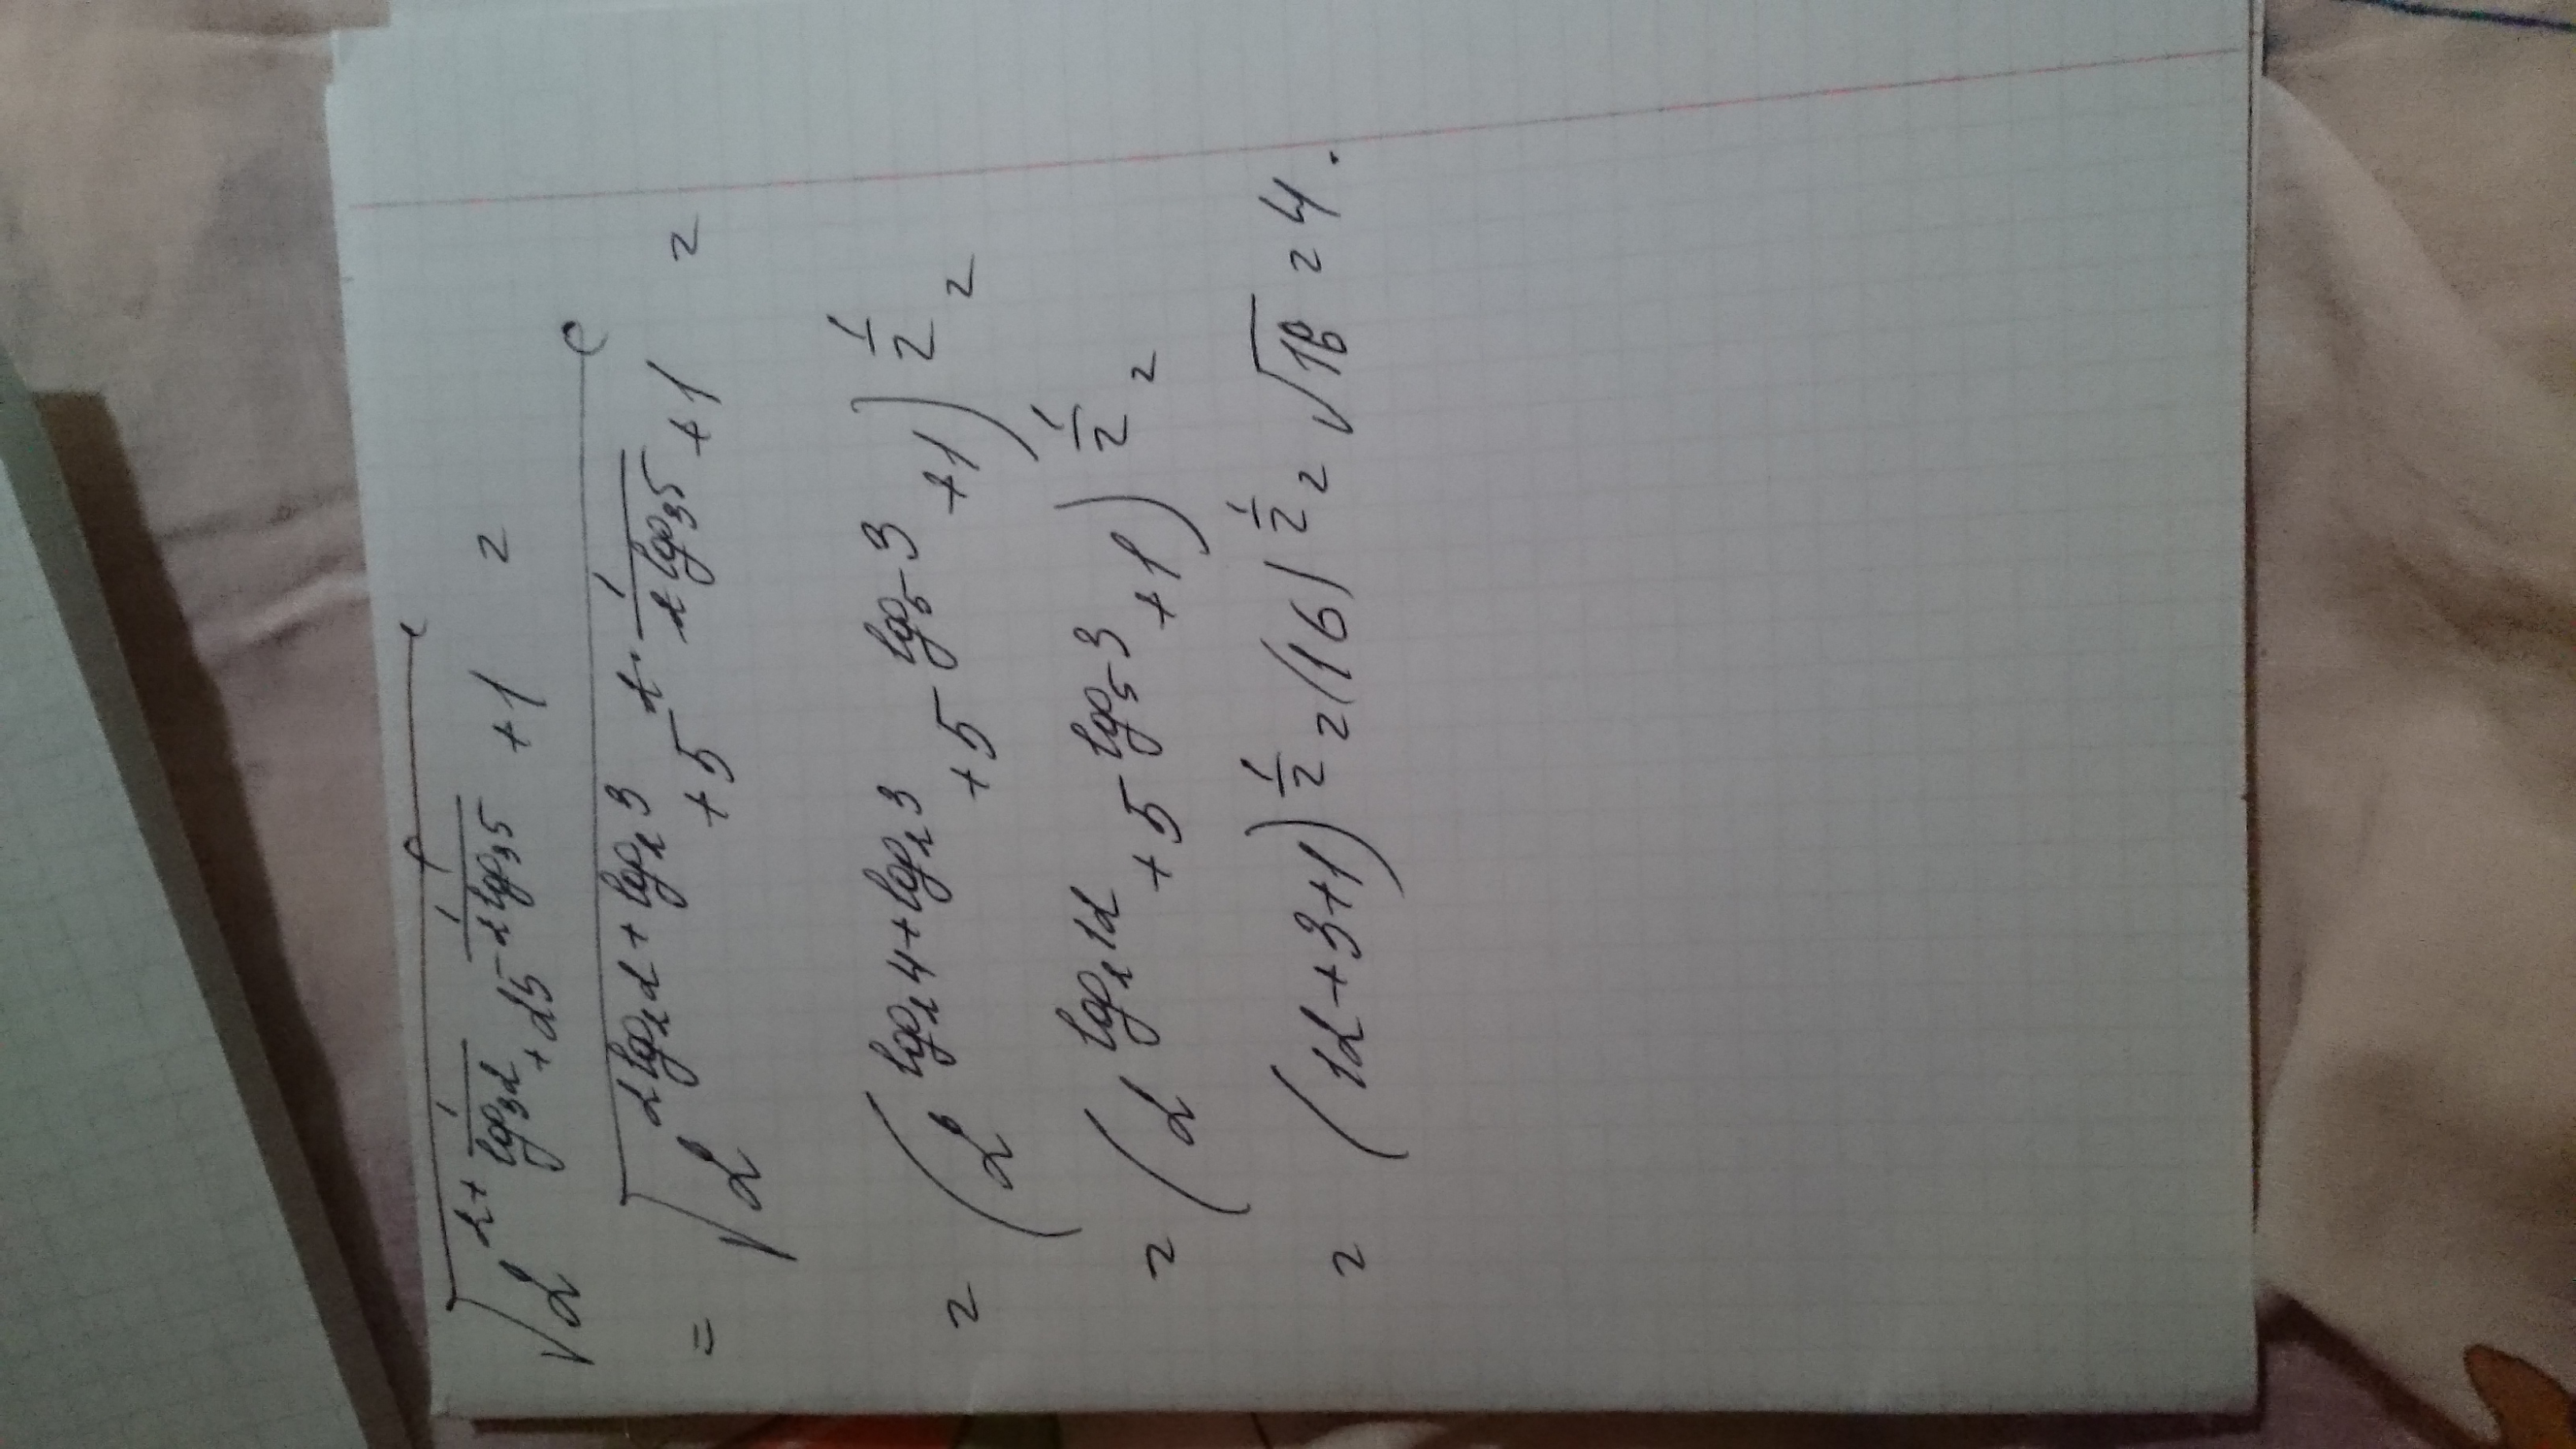 √(2^(2+1/log₃2) + 25^(1/(2log₃5)) + 1) =
= √(2^(2log₂2+log₂3) + 5^(2·1/(2log₃5)) + 1) =
= (2^(log₂4+log₂3) + 5^(log₅3) + 1)^(1/2) =
= (2^(log₂12) + 5^(log₅3) + 1)^(1/2) =
= (12+3+1)^(1/2) = (16)^(1/2) = √16 = 4.